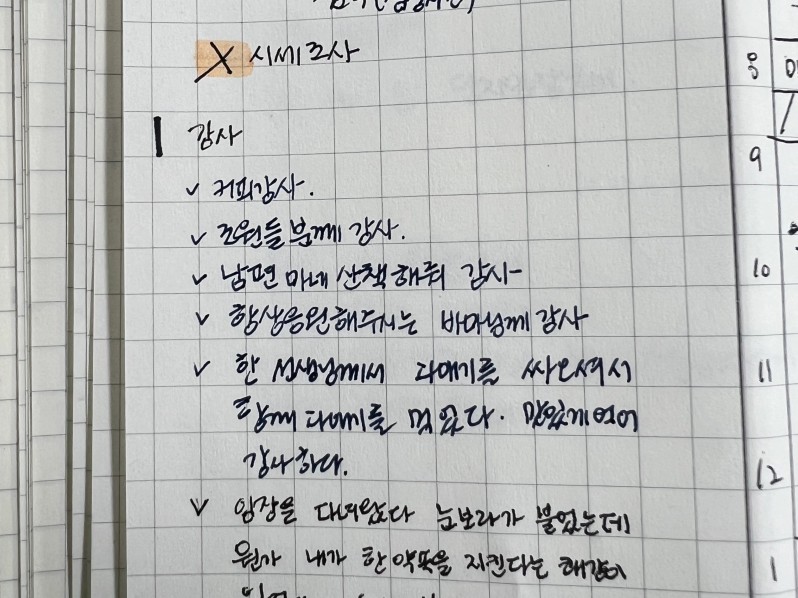 X 시세조사
감사
✓ 커피감사.
✓ 조원들 분께 감사.
✓ 남편 마네 산책해줘 감사
✓ 항상응원해주시는 님께 감사
✓ 한 선생님께서 를 싸오셔서
함께 를 먹었다. 맛있게
감사하다.
✓ 임장을 다녀왔다 눈보라가 불었는데
뭔가 내가 한 약속을 지킨다는
8
9
10
11
12
1